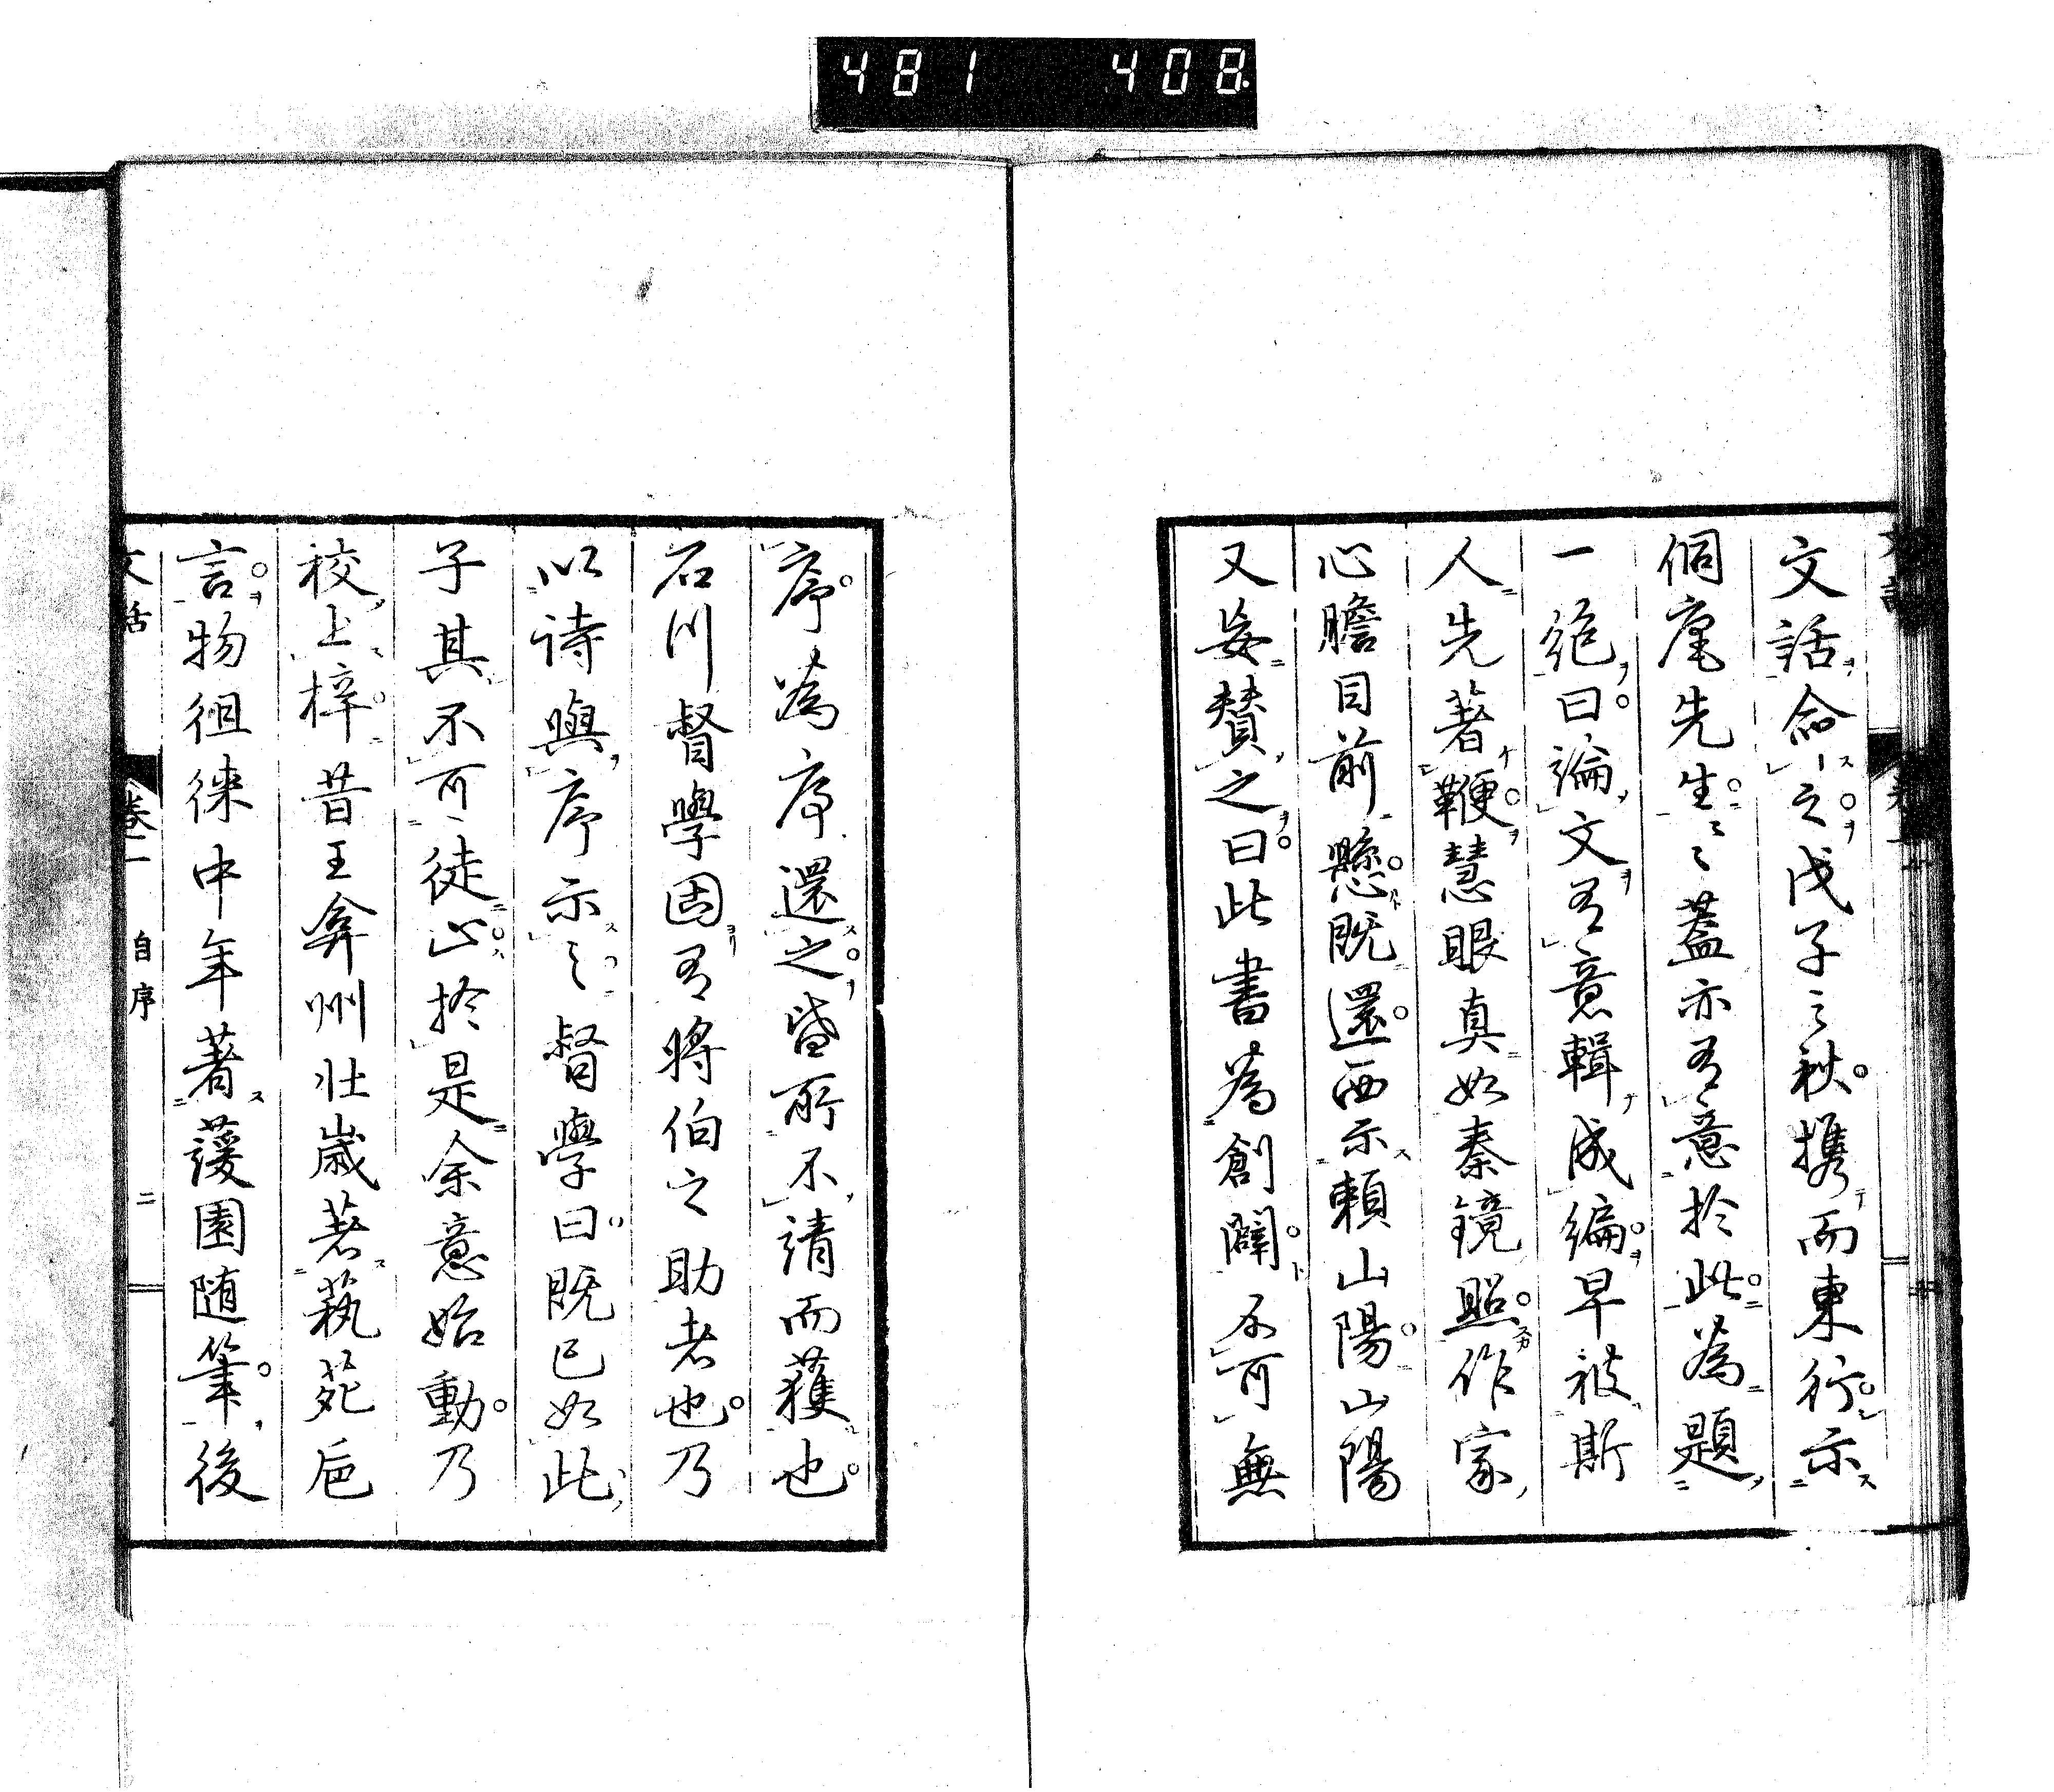 481 408
文話命之戊子之秋携而東行示
侗庵先生々蓋亦有意於此為題
一絶曰論文有意輯成編早被斯
人先著鞭慧眼真如秦鏡照作家
心膽目前懸既還西示賴山陽山陽
又妄賛之曰此書為創闢不可無
序為序還之皆所不請而獲也
石川督學固有將伯之助者也乃
以詩與序示之督學曰既已如此
子其不可徒止於是余意始動乃
校上梓昔王弇州壯歳著藝苑巵
言物徂徠中年著蘐園随筆後
文話 卷一 自序 二